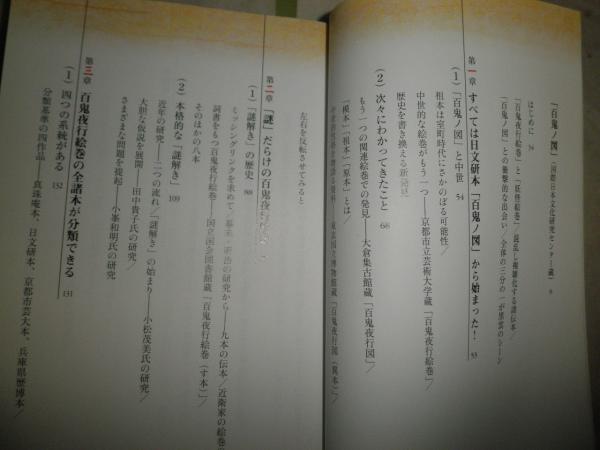 「百鬼ノ図」(国際日本文化研究センター蔵) 9
はじめに 34
「百鬼夜行絵巻」と「妖怪絵巻」/混乱し複雑化する諸伝本/
「百鬼ノ図」との衝撃的な出会い/全体の三分の一が黒雲のシーン
第一章 すべては日文研本「百鬼ノ図」から始まった! 53
(1)「百鬼ノ図」と中世 54
祖本は室町時代にさかのぼる可能性/
中世的な絵巻がもう一つ――京都市立芸術大学蔵「百鬼夜行絵巻」/
歴史を書き換える新発見
(2) 次々にわかってきたこと 68
もう一つの関連絵巻での発見――大倉集古館蔵「百鬼夜行図」/
「模本」「祖本」「原本」とは/
東京国立博物館蔵「百鬼夜行図(異本)」/
左右を反転させてみると
第二章 「謎」だらけの百鬼夜行絵巻
(1)「謎解き」の歴史 88
ミッシングリンクを求めて/幕末・明治の研究から――九本の伝本/近衛家の絵巻
詞書をもつ百鬼夜行絵巻――国立国会図書館蔵「百鬼夜行絵巻(す本)」/
そのほかの八本
(2) 本格的な「謎解き」 109
近年の研究――二つの流れ/「謎解き」の始まり――小松茂美氏の研究/
大胆な仮説を展開――田中貴子氏の研究/
さまざまな問題を提起――小峯和明氏の研究
第三章 百鬼夜行絵巻の全諸本が分類できる 131
(1) 四つの系統がある 132
分類基準の四作品――真珠庵本、日文研本、京都市芸大本、兵庫県歴博本/